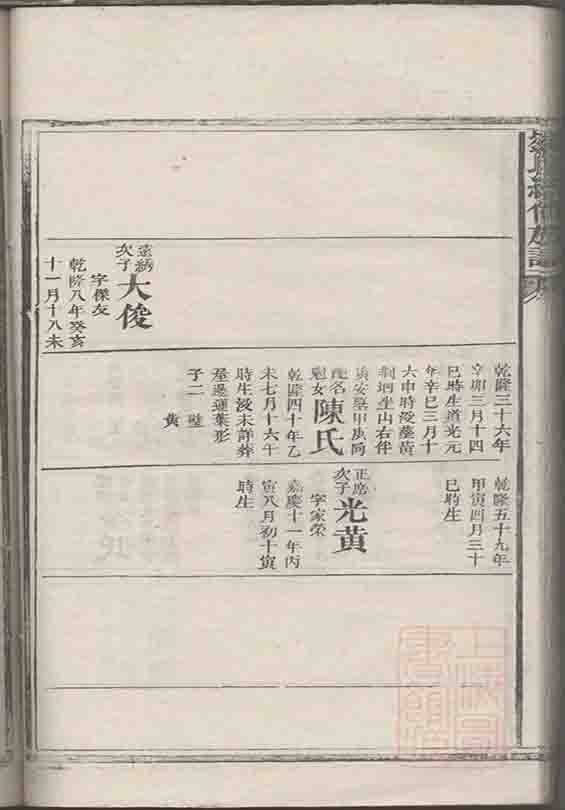 遠綉
次子
大俊
字傑友
乾隆八年癸亥
十一月十八未
乾隆三十六年
辛卯三月十四
巳時生道光元
年辛巳三月十
六申時歿塟黃
坐山右伴
安甲庚向
陳氏
乾隆四十年乙
未七月十六午
時生歿未詳葬
屋邊蓮葉形
子二
黃
乾隆五十九年
甲寅四月三十
巳時生
正席
次子
光黃
字家榮
嘉慶十一年丙
寅八月初十寅
時生